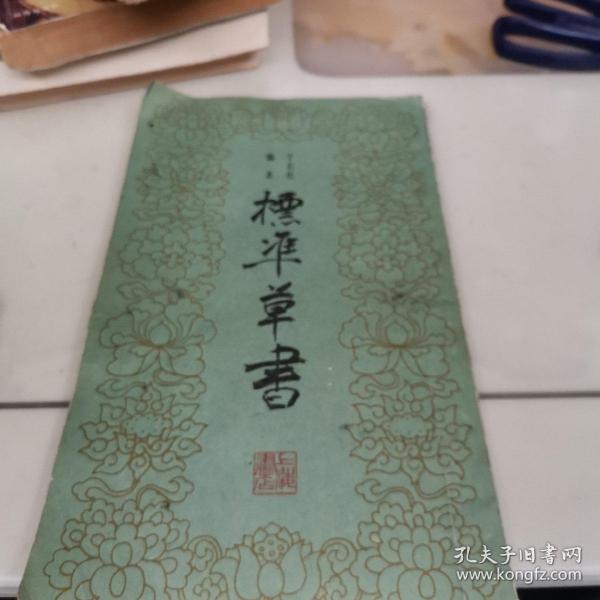 于右任
編著
標準草書
上海
書店
孔夫子旧书网
www.kongfz.com